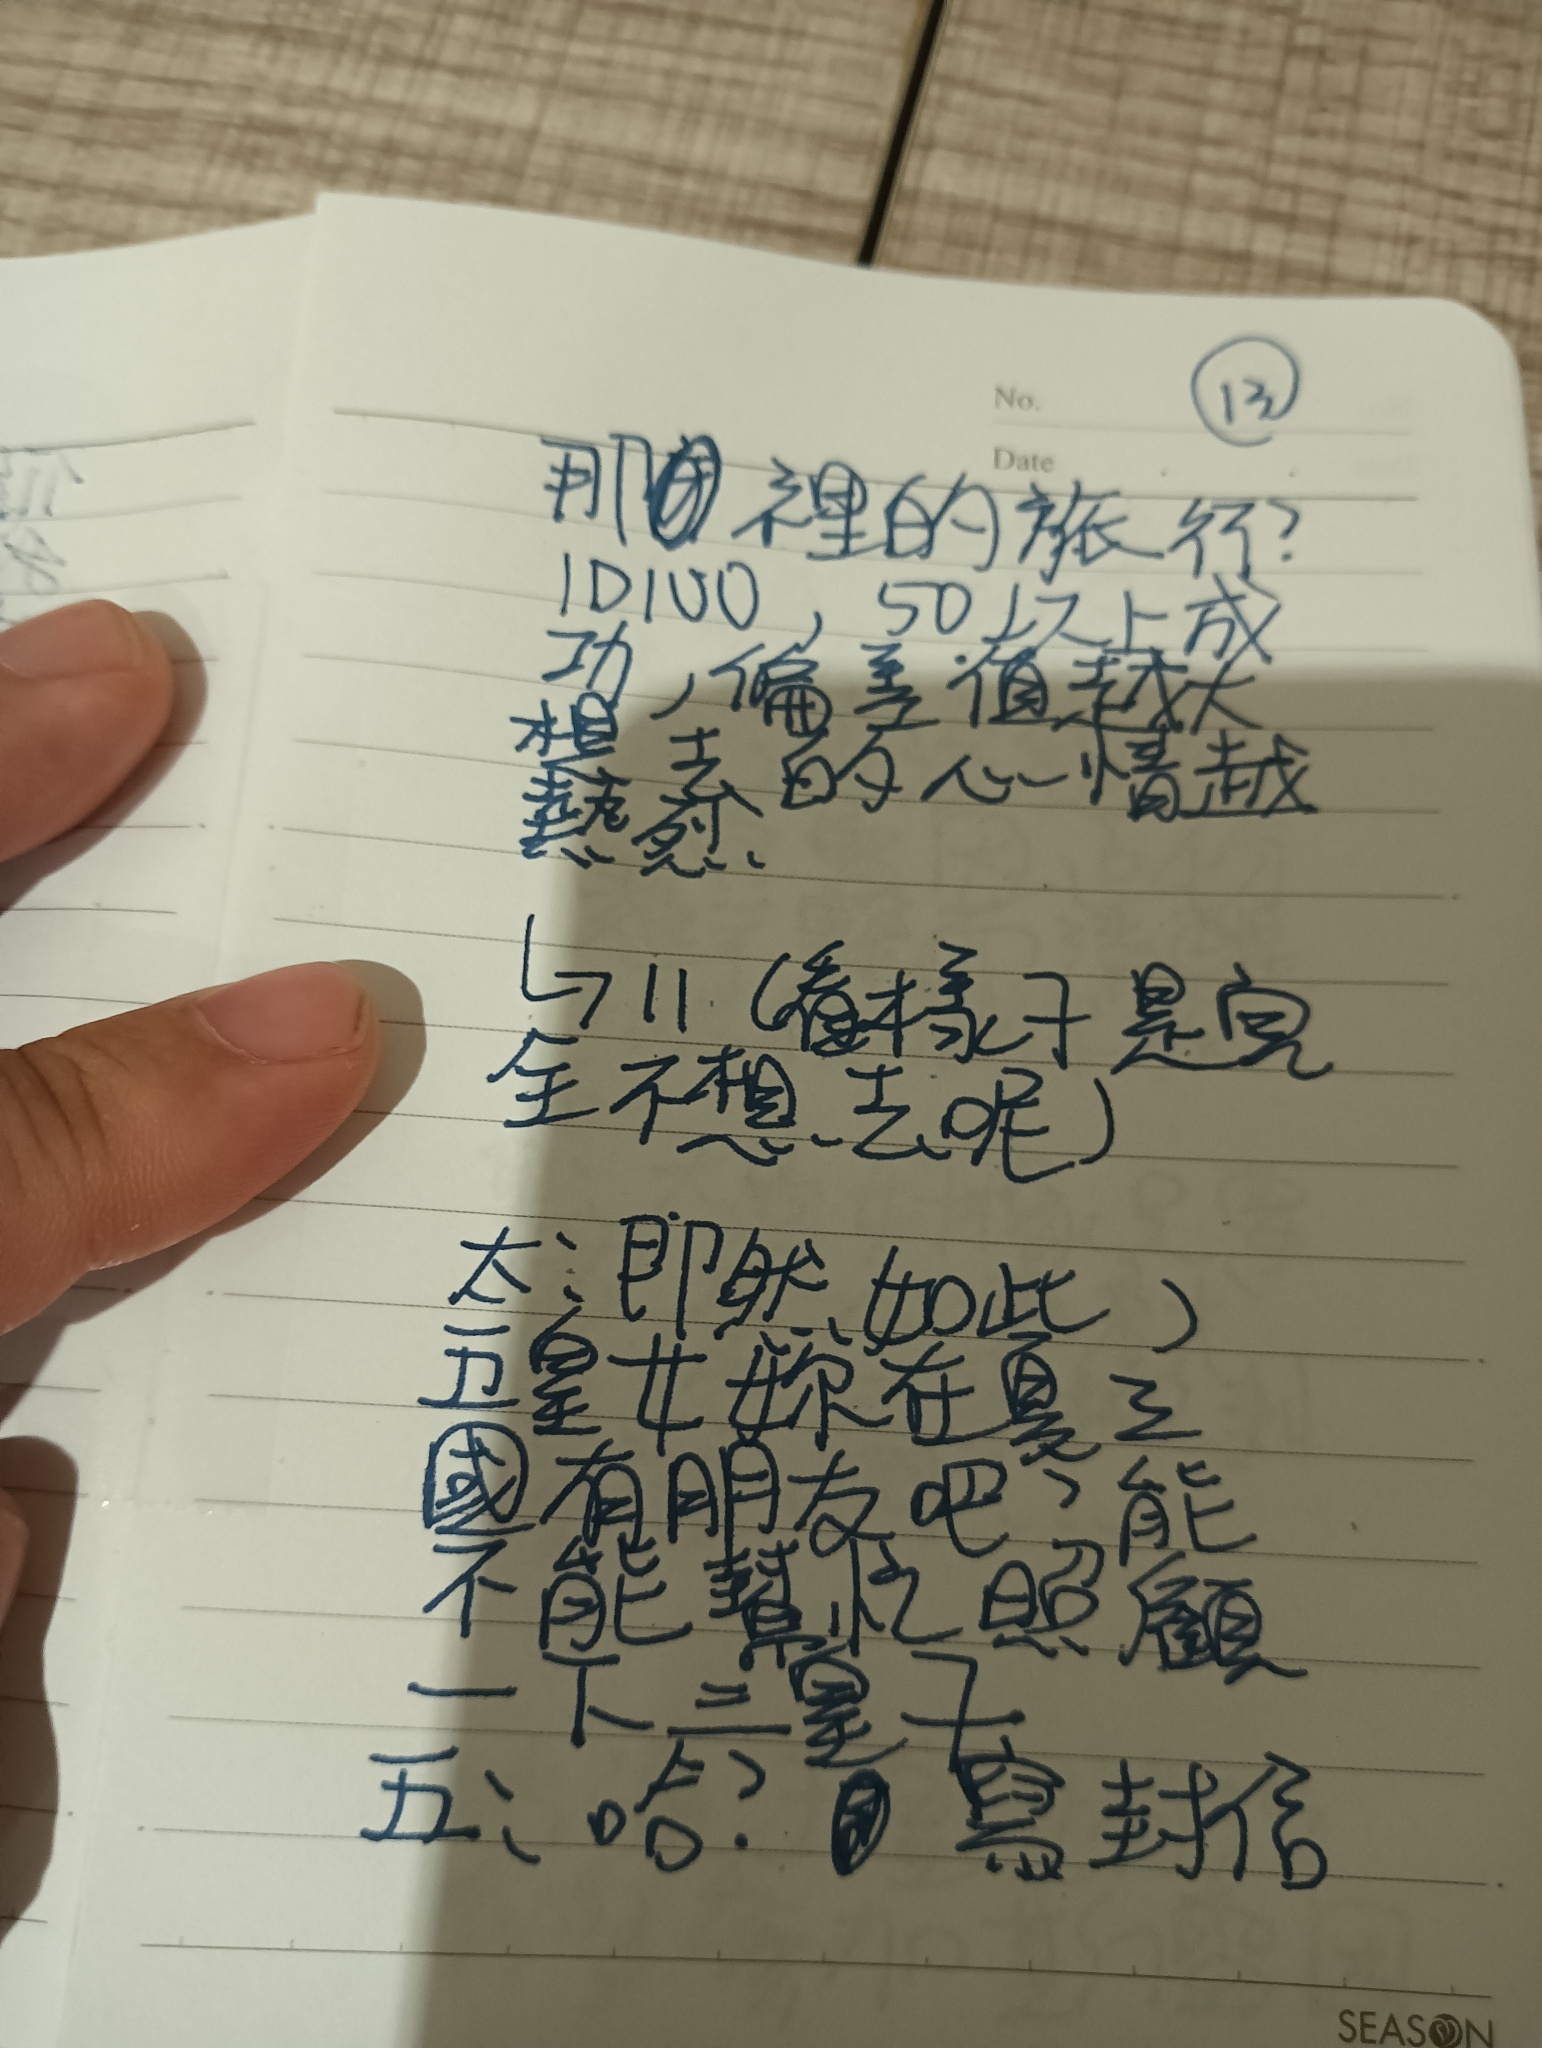 No. 13
Date
那裡的旅行?
1D100，50以上成
功，偏差值越大
想去的心情越
熱烈
↳11 (看樣子是完
全不想去呢)
太:即然如此，
五皇女妳在夏之
國有朋友吧，能
不能幫忙照顧
一下三皇子
五:哈?寫封信
SEASON